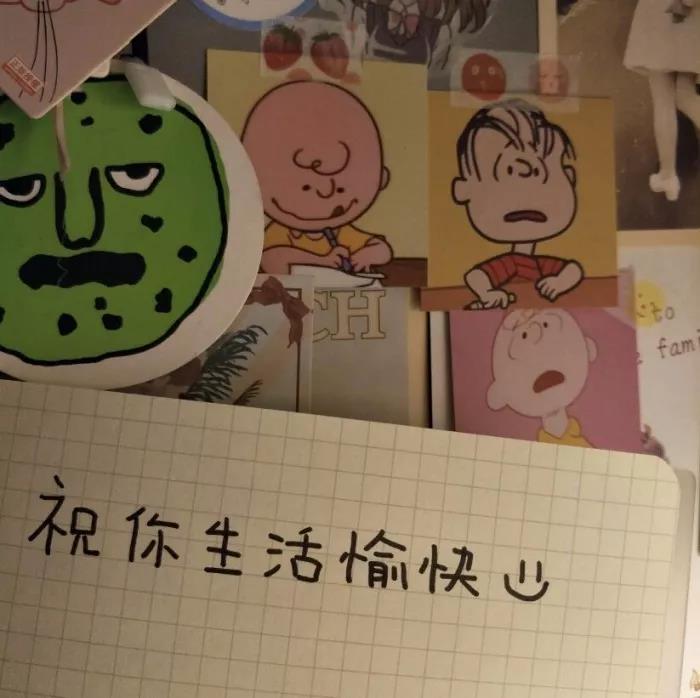 CH
to
fam
祝你生活愉快